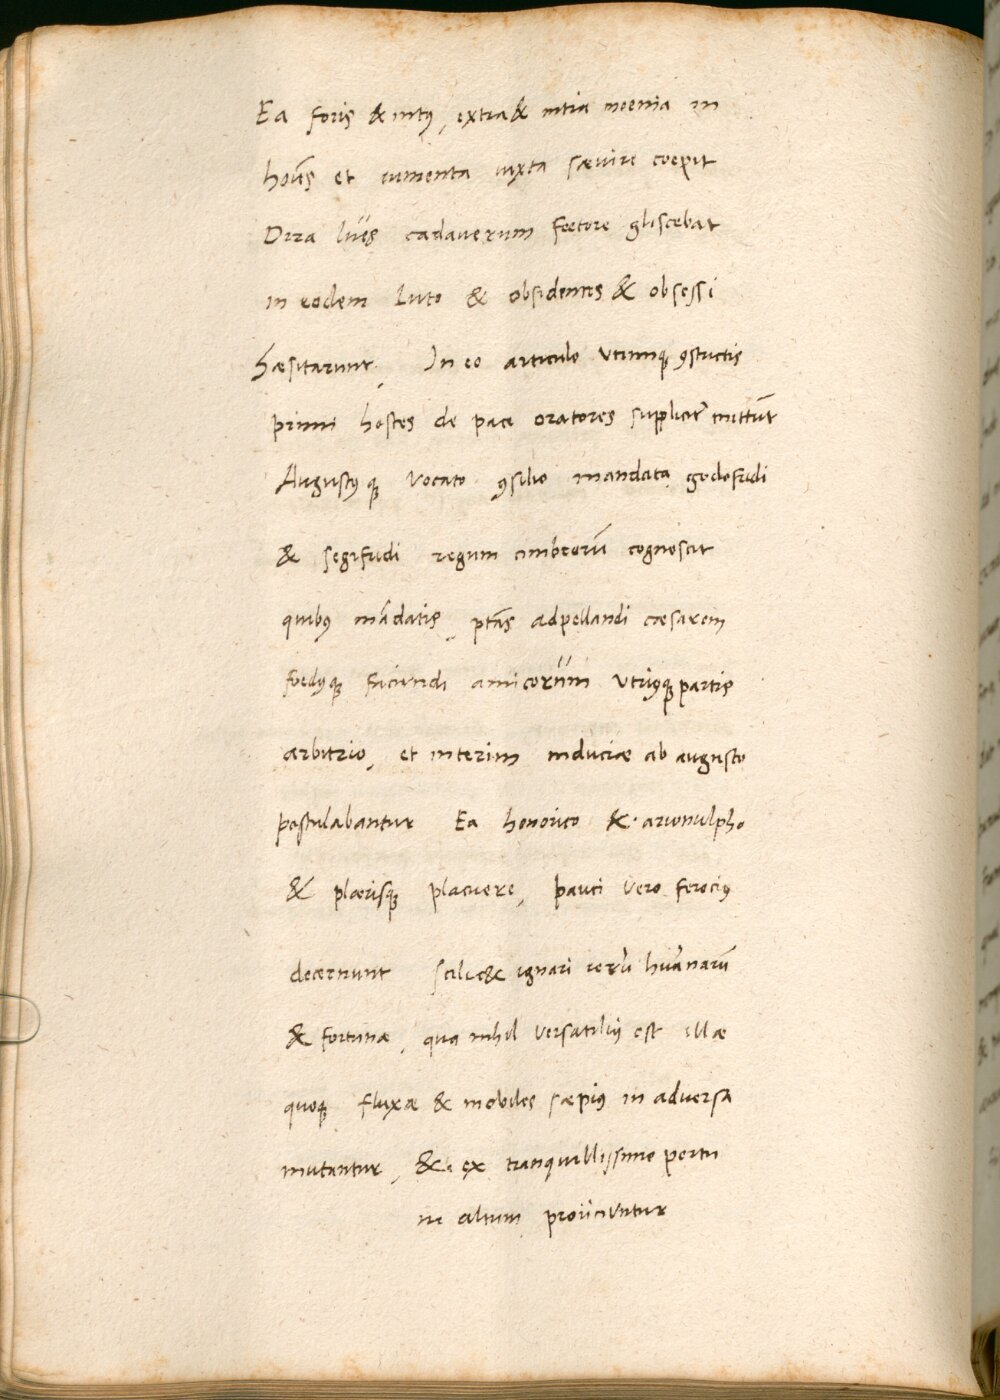 Ea foris & intꝰ, extra & intra moenia in
hoīes et iumenta iuxta sæuire coepit
Dira lues cadauerum foetore gliscebat
in eodem luto & obsidentes & obsessi
hæsitarunt, In eo articulo utrinqꝫ ꝯstrictis
primi hostes de pace oratores supplicit̃ mittūt
Augustꝰqꝫ vocato ꝯsilio mandata godofridi
& segifridi regum cimbrorū cognoscit
quibꝰ mādatis, ptās adpellandi cæsarem
foedꝰqꝫ faciendi amicorum utriꝰqꝫ partis
arbitrio, et interim induciæ ab augusto
postulabantur Ea honorico & arionulpho
& plærisqꝫ placuere, pauci vero ferociꝰ
decernunt scilicet ignari rerū humanarū
& fortunæ, qua nihil versatiliꝰ est illæ
quoqꝫ fluxæ & mobiles sæpiꝰ in aduersa
mutantur, & ex tranquillissimo portu
in altum proiiciuntur